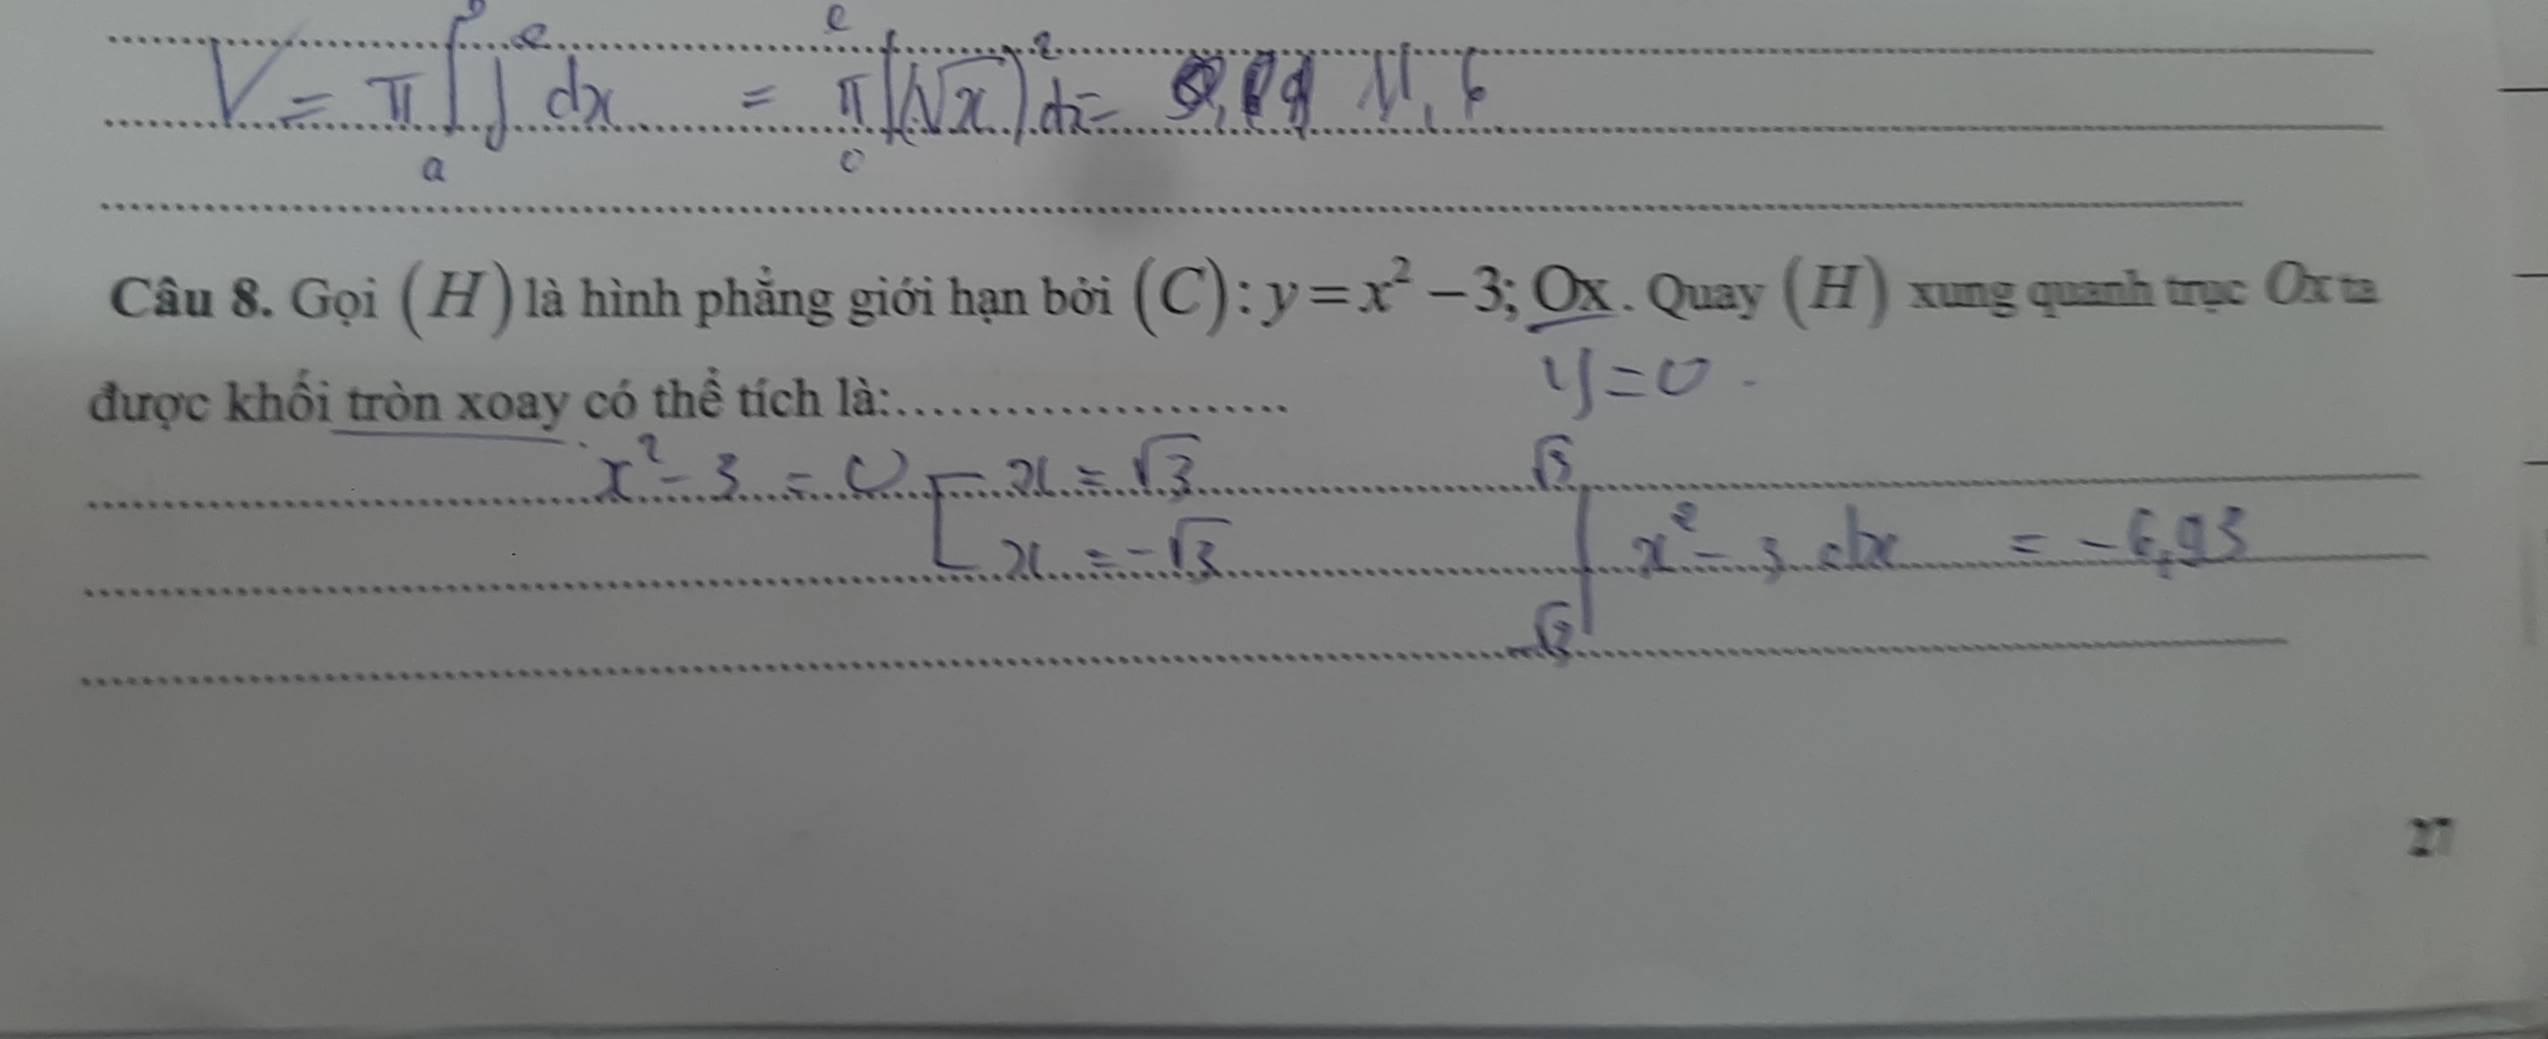 V = π ∫ y² dx = π ∫ (√x)² dx = 11,6
a 0
Câu 8. Gọi (H) là hình phẳng giới hạn bởi (C): y = x² − 3; Ox. Quay (H) xung quanh trục Ox ta
y = 0
được khối tròn xoay có thể tích là:........................
x² − 3 = 0 [ x = √3
x = −√3
√3
∫ x² − 3 dx = −6,93
−√3
27